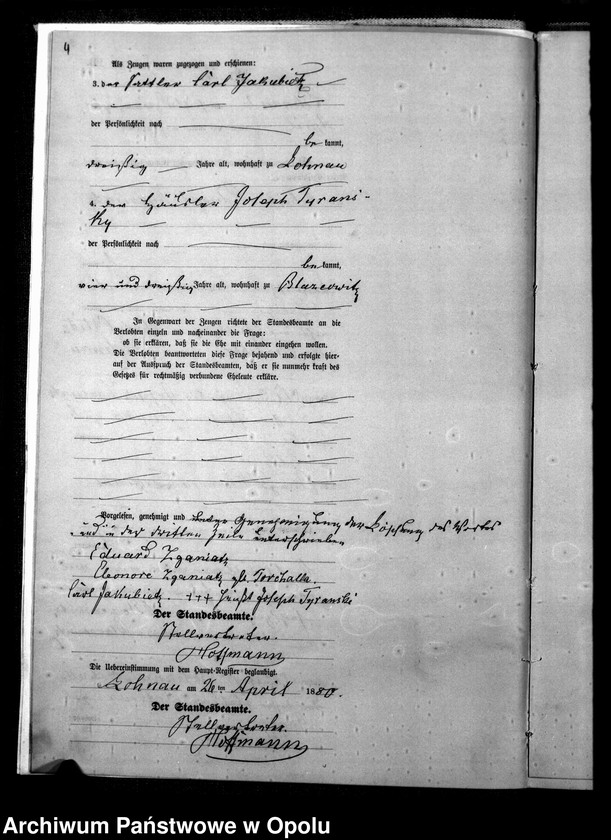 4
Als Zeugen waren zugezogen und erschienen:
3. der Sattler Carl Jakubietz
der Persönlichkeit nach
be kannt,
dreißig Jahre alt, wohnhaft zu Lohnau
4. der Häusler Joseph Tyrans-
ky
der Persönlichkeit nach
be kannt,
vier und dreißig Jahre alt, wohnhaft zu Blazeowitz
In Gegenwart der Zeugen richtete der Standesbeamte an die
Verlobten einzeln und nacheinander die Frage:
ob sie erklären, daß sie die Ehe mit einander eingehen wollen.
Die Verlobten beantworteten diese Frage bejahend und erfolgte hier-
auf der Ausspruch der Standesbeamten, daß er sie nunmehr kraft des
Gesetzes für rechtmäßig verbundene Eheleute erkläre.
Vorgelesen, genehmigt und unter Genehmigung der Löschung des Wortes
"und" in der dritten Zeile unterschrieben
Eduard Zganiatz
Eleonore Zganiatz geb. Torchalla.
Carl Jakubietz. +++ Joseph Tyranski
Der Standesbeamte.
Stellvertreter.
Hoffmann
Die Uebereinstimmung mit dem Haupt-Register beglaubigt.
Lohnau am 26 ten April 1880.
Der Standesbeamte.
Stellvertreter.
Hoffmann
Archiwum Państwowe w Opolu